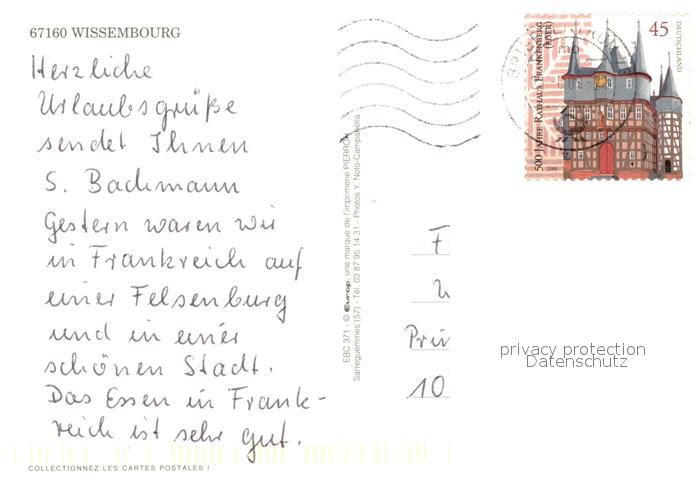 67160 WISSEMBOURG
Herzliche
Urlaubsgrüße
sendet Ihnen
S. Bachmann
Gestern waren wir
in Frankreich auf
einer Felsenburg
und in einer
schönen Stadt.
Das Essen in Frank-
reich ist sehr gut.
COLLECTIONNEZ LES CARTES POSTALES !
EBC 371 - © Europ, une marque de l'imprimerie PIERRON
Sarreguemines (57) - Tél. 03 87 95 14 31 - Photos Y. Noto-Campanella
500 JAHRE RATHAUS FRANKENBERG
(EDER)
2009
45
DEUTSCHLAND
F
Prü
10
privacy protection
Datenschutz